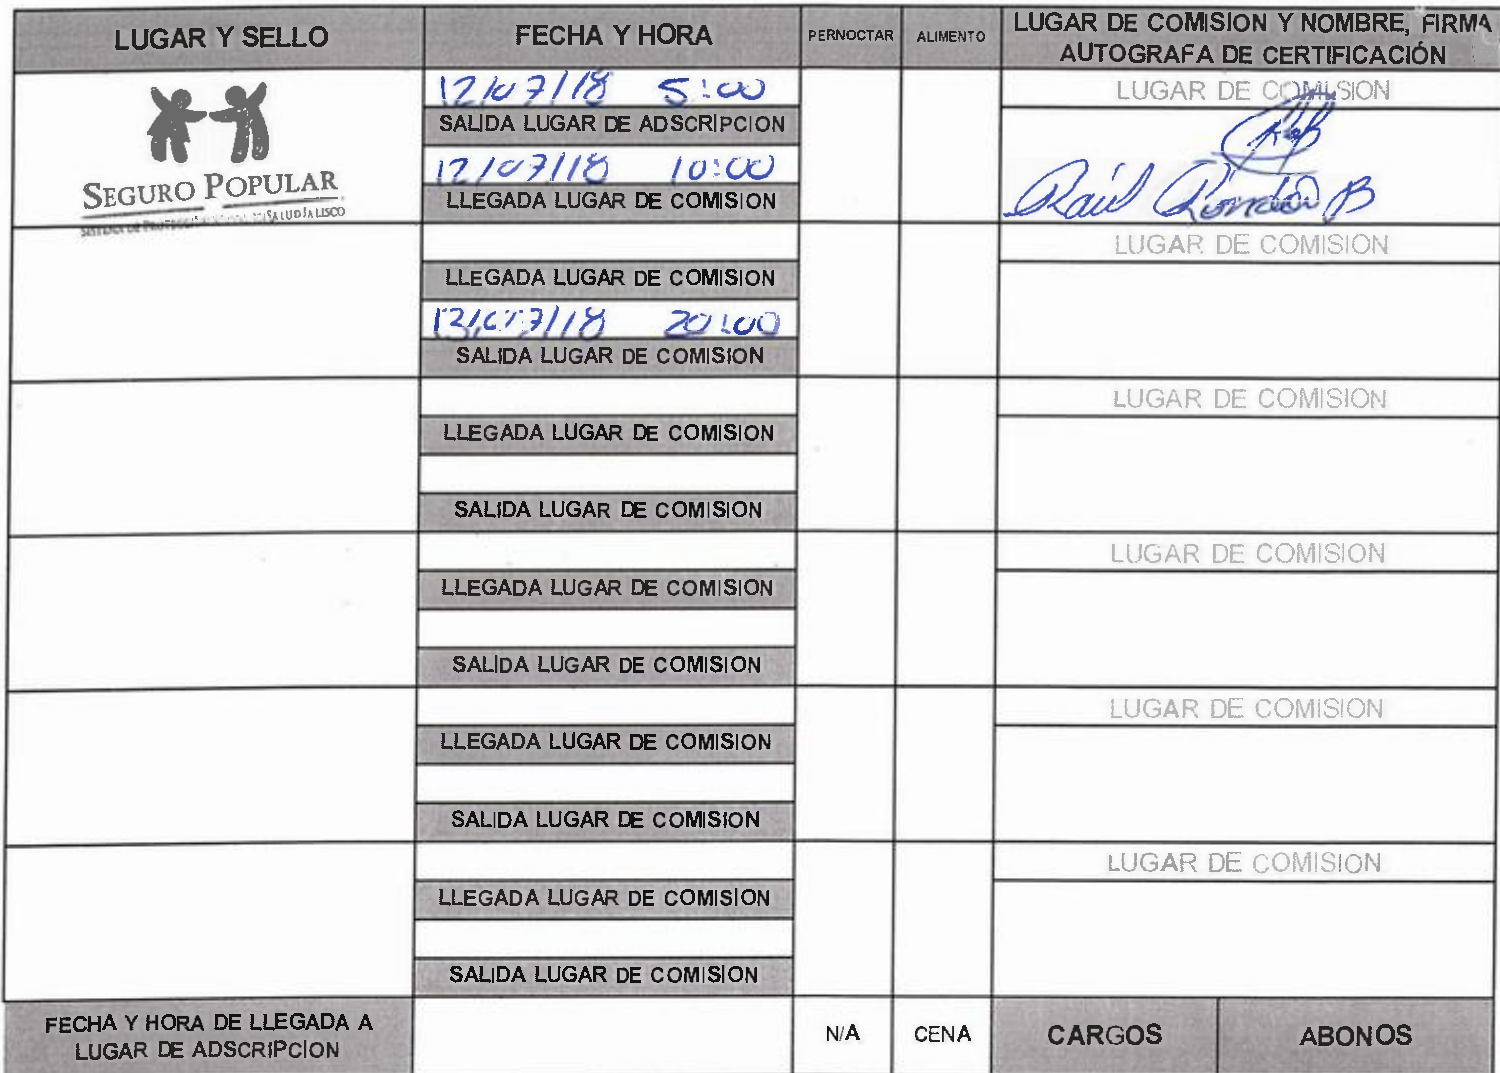 LUGAR Y SELLO
FECHA Y HORA
PERNOCTAR
ALIMENTO
LUGAR DE COMISION Y NOMBRE, FIRMA
AUTOGRAFA DE CERTIFICACIÓN
12/07/18 5:00
LUGAR DE COMISION
SALIDA LUGAR DE ADSCRIPCION
12/07/18 10:00
SEGURO POPULAR
LLEGADA LUGAR DE COMISION
Raúl
B
LUGAR DE COMISION
LLEGADA LUGAR DE COMISION
13/07/18 20:00
SALIDA LUGAR DE COMISION
LUGAR DE COMISION
LLEGADA LUGAR DE COMISION
SALIDA LUGAR DE COMISION
LUGAR DE COMISION
LLEGADA LUGAR DE COMISION
SALIDA LUGAR DE COMISION
LUGAR DE COMISION
LLEGADA LUGAR DE COMISION
SALIDA LUGAR DE COMISION
LUGAR DE COMISION
LLEGADA LUGAR DE COMISION
SALIDA LUGAR DE COMISION
FECHA Y HORA DE LLEGADA A
LUGAR DE ADSCRIPCION
N/A
CENA
CARGOS
ABONOS